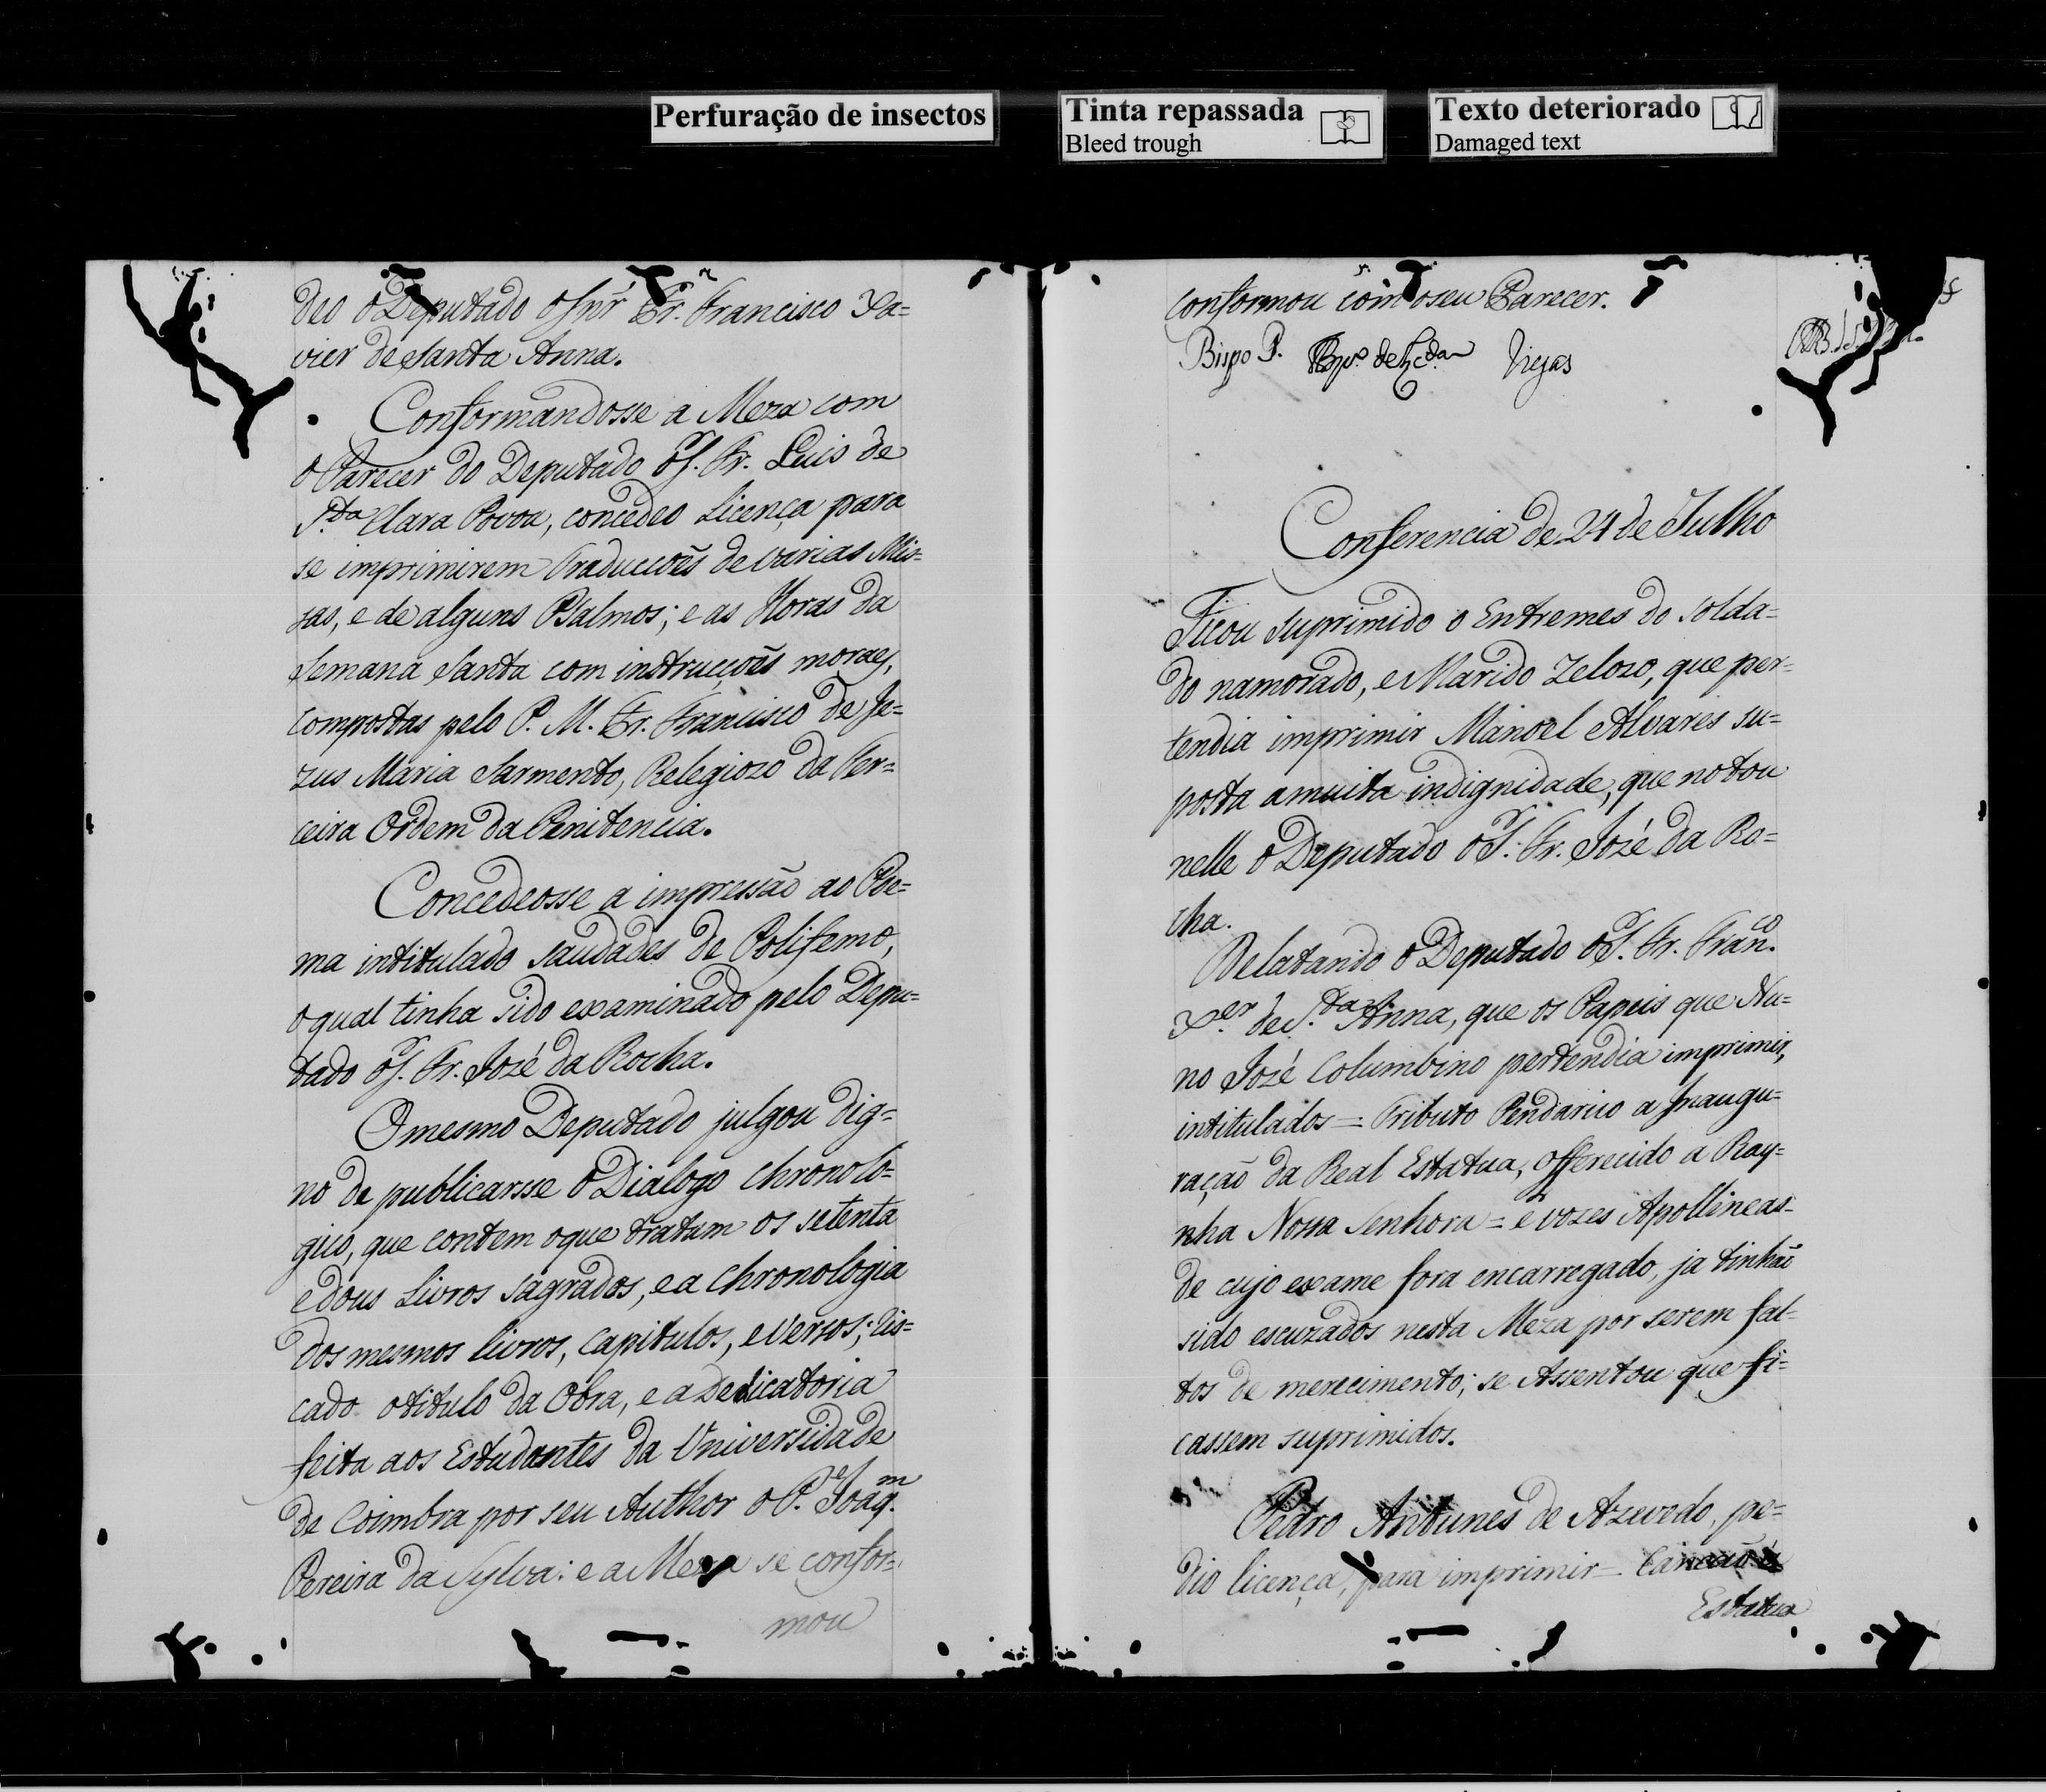 Perfuração de insectos
Tinta repassada
Bleed trough
Texto deteriorado
Damaged text
deo o Deputado o Snr Fr. Francisco Xa=
vier de Santa Anna.
Conformandosse a Meza com
o Parecer do Deputado o S.r Fr. Luis de
S.ta Clara Povoa, concedeo Licença para
se imprimirem Traducções de varias Mis=
sas, e de alguns Psalmos; e as Horas da
Semana Santa com instrucções moraes,
compostas pelo P. M. Fr. Francisco de Je=
zus Maria Sarmento, Relegiozo da Ter=
ceira Ordem da Penitencia.
Concedeosse a impressão ao Poe=
ma intitulado Saudades de Polifemo,
o qual tinha sido examinado pelo Depu=
tado o S.r Fr. Jozé da Rocha.
O mesmo Deputado julgou dig=
no de publicarsse o Dialogo Chronolo=
gico, que contem o que tratam os setenta
e dous Livros sagrados, e a Chronologia
dos mesmos livros, Capitulos, e Versos; ris=
cado o titulo da Obra, e a Dedicatoria
feita aos Estudantes da Universidade
de Coimbra por seu Author o P.e Joaq.m
Pereira da Sylva: e a Meza se confor=
mou
conformou com o seu Parecer.
Bispo P. Viegas
Conferencia de 24 de Julho
Ficou suprimido o Entremes do Solda=
do namorado, e Marido Zelozo, que per=
tendia imprimir Manoel Alvares su=
posta a muita indignidade, que notou
nelle o Deputado o S.r Fr. Jozé da Ro=
cha.
Relatando o Deputado o S.r Fr. Fran.co
X.er de S.ta Anna, que os Papeis que Nu=
no Jozé Columbino pertendia imprimir,
intitulados = Tributo Pendarico a Inaugu=
ração da Real Estatua, offerecido a Ray=
nha Nossa Senhora = e vozes Apollineas=
de cujo exame fora encarregado, ja tinhão
sido escuzados nesta Meza por serem fal=
tos de merecimento; se Assentou que fi=
cassem suprimidos.
Pedro Antunes de Azevedo, pe=
dio licença, para imprimir = Canção á
Estatua